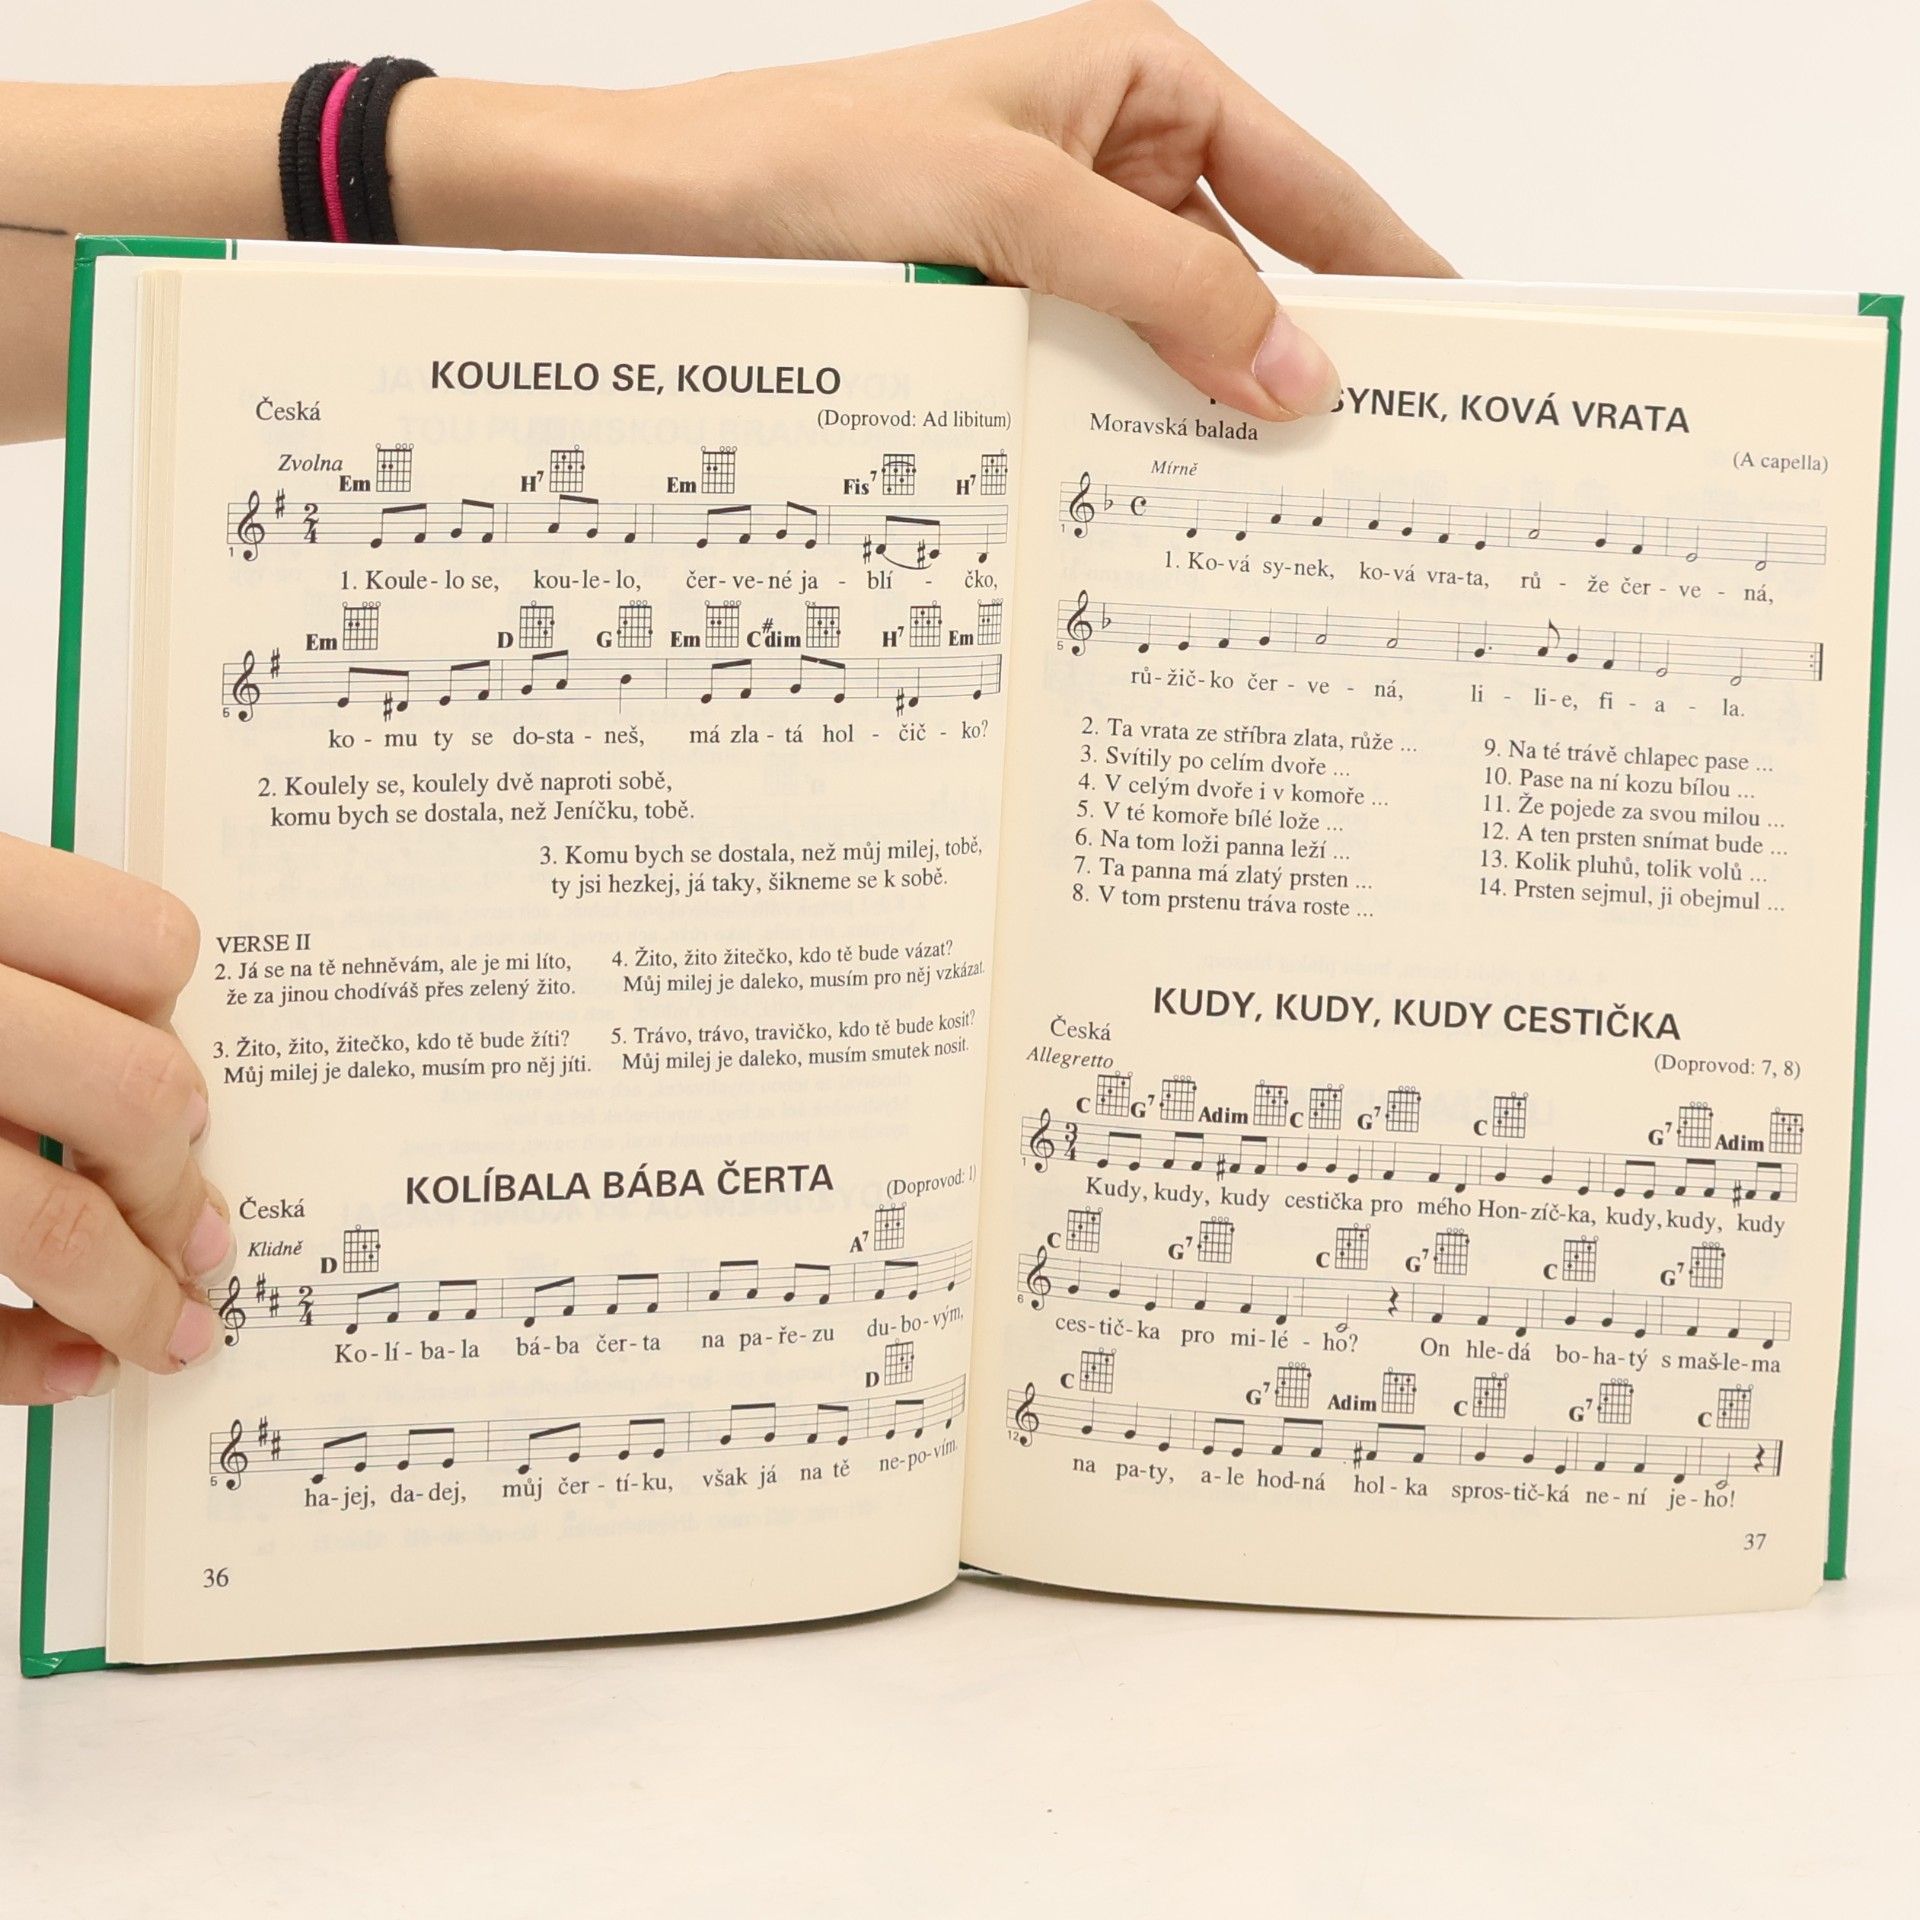 KOULELO SE, KOULELO
Česká
(Doprovod: Ad libitum)
Zvolna
Em H7 Em Fis7 H7
2
4
1
1. Koule- lo se, kou-le-lo, čer-ve-né ja - blí - čko,
Em D G Em C#dim H7 Em
5
ko - mu ty se do-sta - neš, má zla - tá hol - čič - ko?
2. Koulely se, koulely dvě naproti sobě,
komu bych se dostala, než Jeníčku, tobě.
3. Komu bych se dostala, než můj milej, tobě,
ty jsi hezkej, já taky, šikneme se k sobě.
VERSE II
2. Já se na tě nehněvám, ale je mi líto,
že za jinou chodíváš přes zelený žito.
3. Žito, žito, žitečko, kdo tě bude žíti?
Můj milej je daleko, musím pro něj jíti.
4. Žito, žito žitečko, kdo tě bude vázat?
Můj milej je daleko, musím pro něj vzkázat.
5. Trávo, trávo, travičko, kdo tě bude kosit?
Můj milej je daleko, musím smutek nosit.
KOLÍBALA BÁBA ČERTA
(Doprovod: 1)
Česká
Klidně
D A7
2
4
Ko- lí - ba- la bá- ba čer- ta na pa- ře- zu du- bo- vým,
D
5
ha- jej, da- dej, můj čer - tí- ku, však já na tě ne-po-vím.
36
SYNEK, KOVÁ VRATA
Moravská balada
(A capella)
Mírně
1
1. Ko-vá sy-nek, ko-vá vra-ta, rů - že čer - ve - ná,
5
rů- žič- ko čer - ve - ná, li - li- e, fi - a - la.
2. Ta vrata ze stříbra zlata, růže ...
3. Svítily po celím dvoře ...
4. V celým dvoře i v komoře ...
5. V té komoře bílé lože ...
6. Na tom loži panna leží ...
7. Ta panna má zlatý prsten ...
8. V tom prstenu tráva roste ...
9. Na té trávě chlapec pase ...
10. Pase na ní kozu bílou ...
11. Že pojede za svou milou ...
12. A ten prsten snímat bude ...
13. Kolik pluhů, tolik volů ...
14. Prsten sejmul, ji obejmul ...
KUDY, KUDY, KUDY CESTIČKA
Česká
(Doprovod: 7, 8)
Allegretto
C G7 Adim C G7 C G7 Adim
3
4
1
Kudy, kudy, kudy cestička pro mého Hon-zíč-ka, kudy, kudy, kudy
C G7 C G7 C G7
6
ces-tič-ka pro mi-lé - ho? On hle-dá bo-ha-tý s maš-le-ma
C G7 Adim C G7 C
12
na pa-ty, a- le hod-ná hol - ka spros-tič-ká ne- ní je - ho!
37